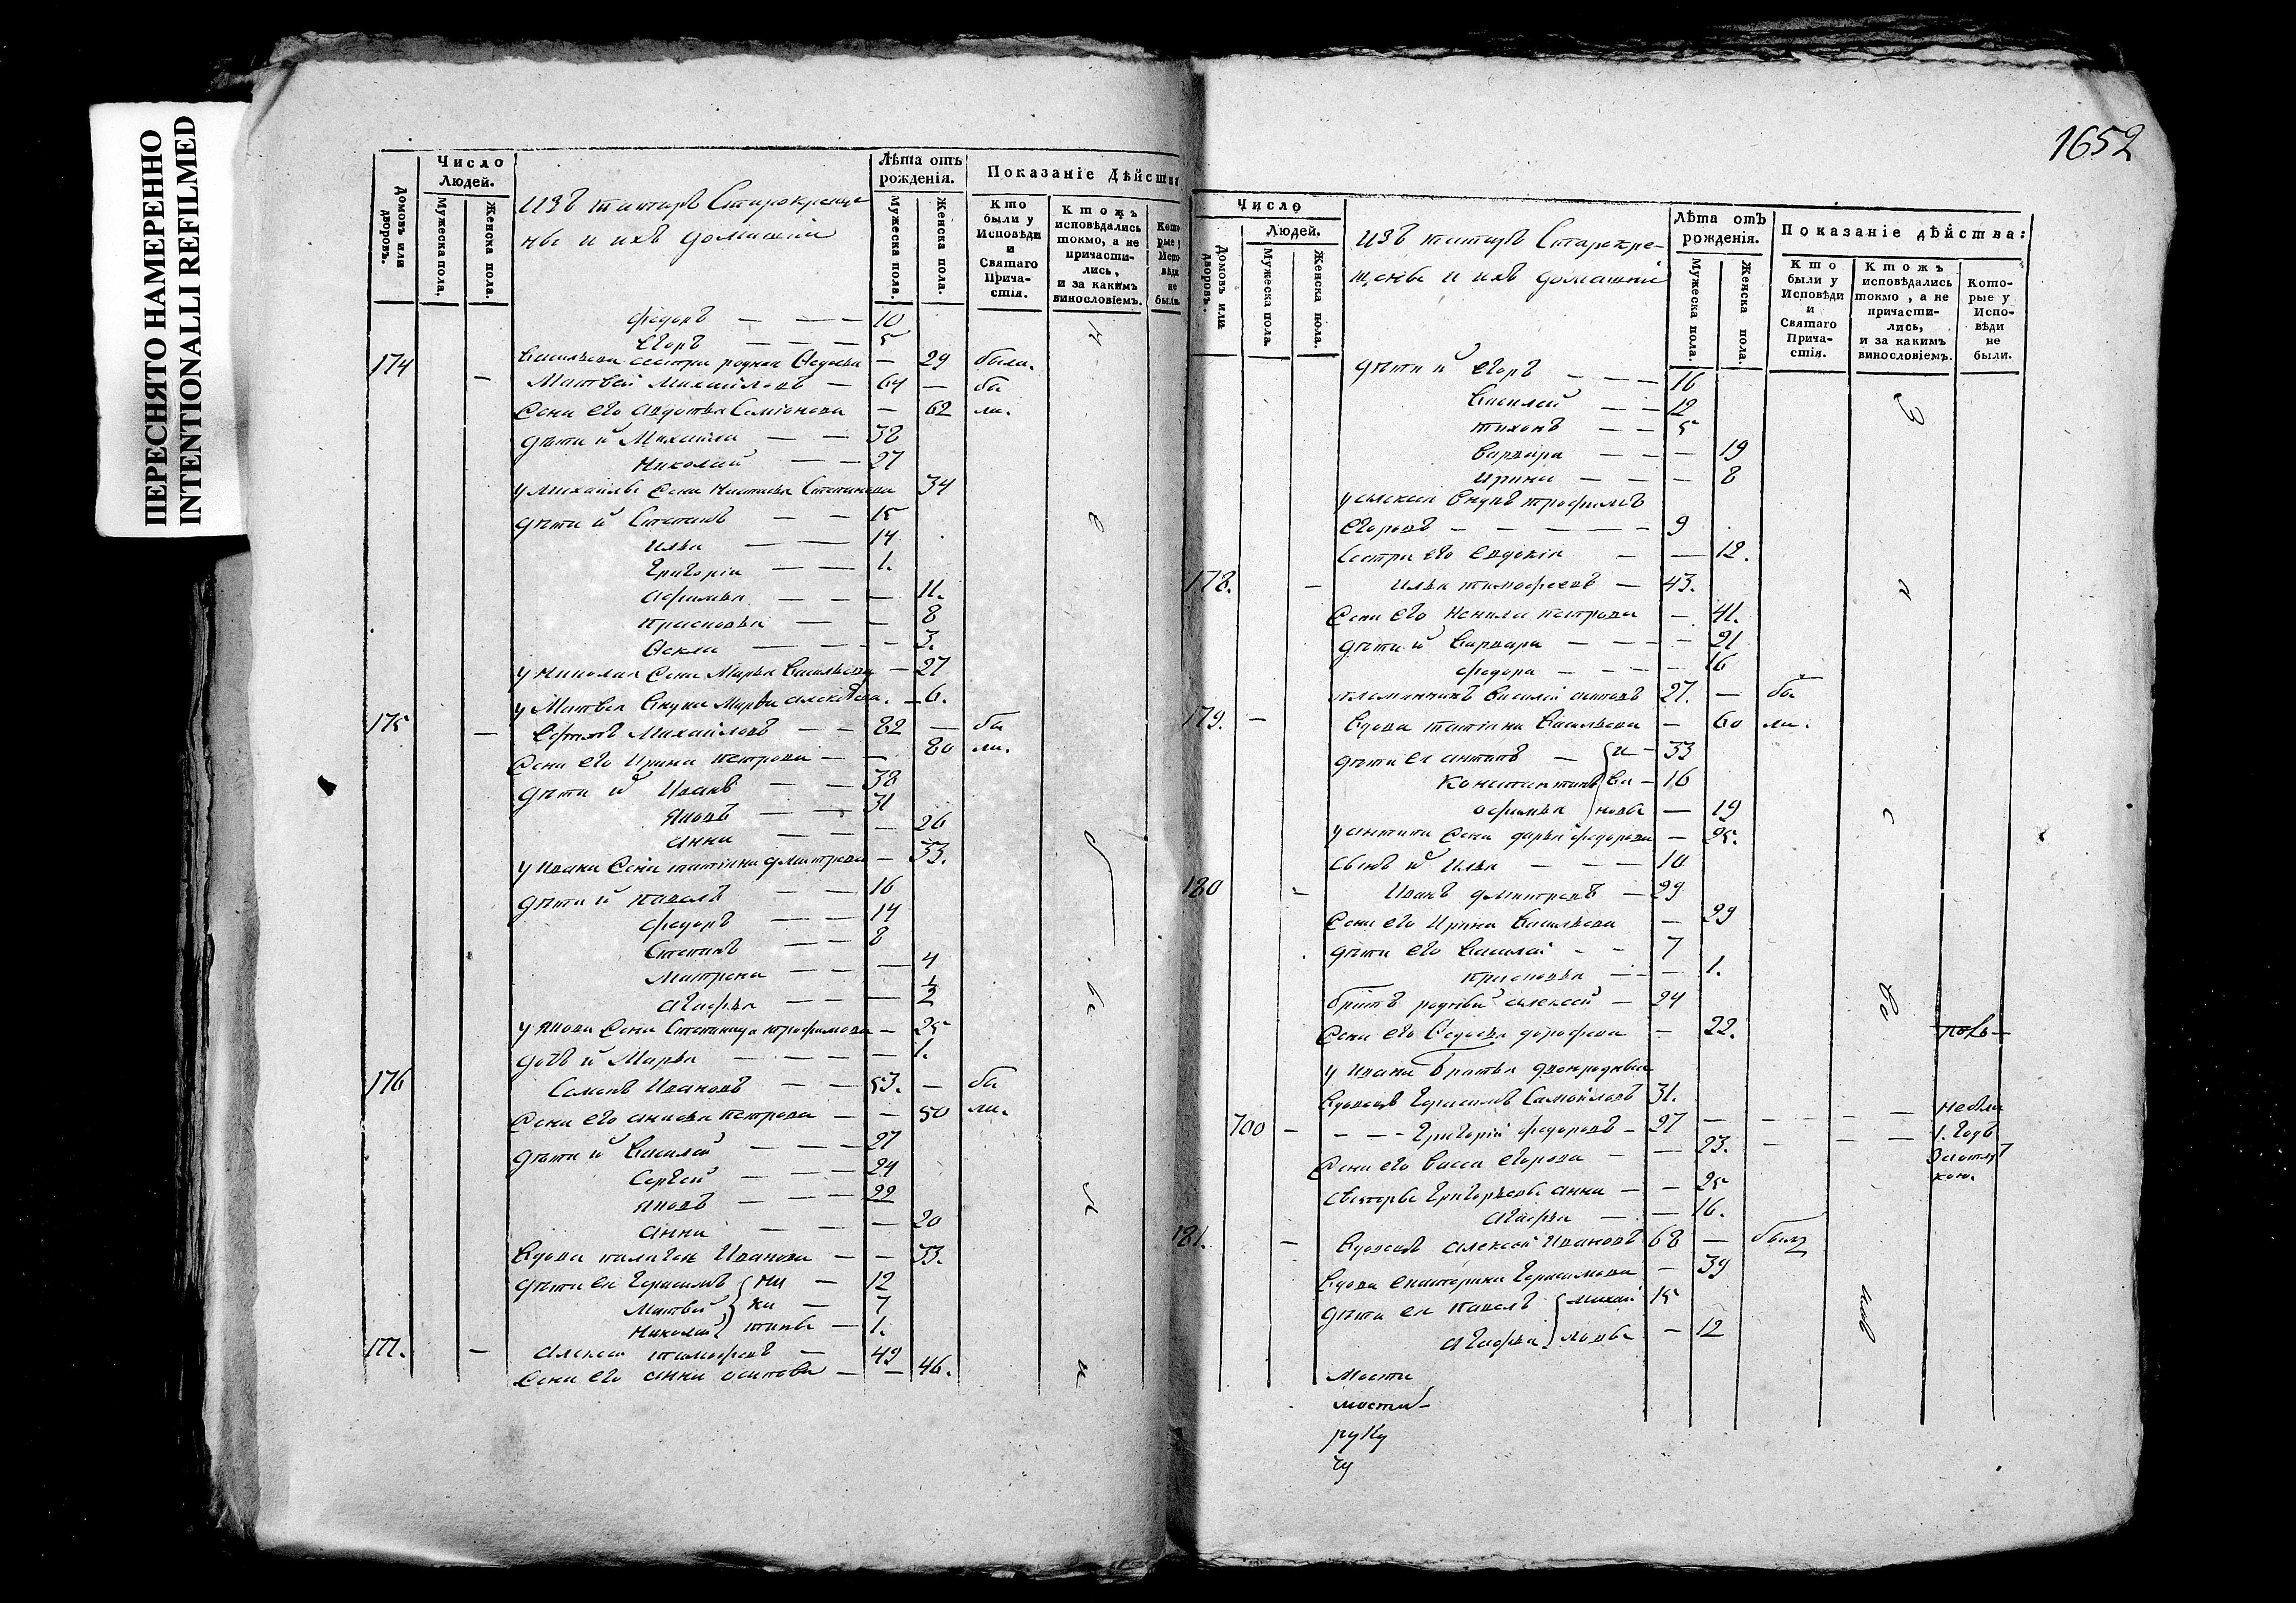 ПЕРЕСНЯТО НАМЕРЕННО
INTENTIONALLI REFILMED
Домовъ или дворовъ.
Число Людей.
Мужеска пола.
Женска пола.
изъ татаръ Старокреще
ны и ихъ домашнiи
Лѣта отъ рожденiя.
Мужеска пола.
Женска пола.
Показанiе Дѣйства
Кто были у Исповѣди и Святаго Прича-стiя.
Ктожъ исповѣдались токмо, а не причасти-лись, и за какимъ винословiемъ.
Кото рые у Испо вѣди не были.
Федоръ — — — 10
Егоръ — — — 5
Васильева сестра родная Федосья — 29 была.
174 — Матвей Михайловъ — 64 — бы
Жена его Авдотья Семiонова — 62 ли.
дѣти и Михайла — — 38
Николай — — 27
у Михайлы Жена Настасья Степанова 34
дѣти и Степанъ — — 15
Илья — — 14
Григорiи — — 1.
Афимья — — — 11.
Прасковья — — 8
Фекла — — — — 3.
у Николая Жена Марья Васильева — 27
у Матвея Внука Марья Алексѣева. — 6.
175 — Ефимъ Михайловъ — — 82 — бы
Жена его Ирина Петрова — — 80 ли.
дѣти и Иванъ — — 38
Яковъ — — 31
Анна — — — 26
у Ивана Жена Татiяна Дмитрева — 33.
дѣти и Павелъ — — 16
Федоръ — — 14
Степанъ — — 8
Матрена — — — 4
Агафья — — — 1/2
у Якова Жена Степанида Трофимова — 25
дочь и Марья — — — — 1.
176 Семенъ Ивановъ — — 53. — бы
Жена его Анисья Петрова — — 50 ли.
дѣти и Василей — — — 27
Сергей — — — 24
Яковъ — — — 22
Анна — — — — 20
Вдова Пелагея Иванова — — 33.
дѣти ея Герасимъ ни — 12
Матвей ки — 7
Николай тины — 1.
177. — Алексей Тимофеевъ — 49
Жена его Анна Осипова — — 46.
1652
Число
Домовъ или дворовъ.
Людей.
Мужеска пола.
Женска пола.
изъ татаръ Старокре-
щены и ихъ домашнiи
Лѣта отъ рожденiя.
Мужеска пола.
Женска пола.
Показанiе дѣйства:
Кто были у Исповѣди и Святаго Прича-стiя.
Ктожъ исповѣдались токмо, а не причасти-лись, и за какимъ винословiемъ.
Кото-рые у Испо-вѣди не были.
дѣти и Егоръ — — — 16
Василей — — 12
Тихонъ — — 5
Варвара — — — 19
Ирина — — — 8
у Алексея Внукъ Трофимъ
Егоровъ — — — — — 9
Сестра его Евдокiя — — 12.
178. — Илья Тимофеевъ — 43.
Жена его Ненила Петрова — 41.
дѣти и Варвара — — — — 21
Федора — — — — 16
племянникъ Василiй Антоновъ 27. — бы
179. — Вдова Татiяна Васильева — 60 ли.
дѣти ея Антипъ — и — 33
Константинъ ва — 16
Офимья новы — 19
у Антипа Жена Дарья Федорова — 25.
сынъ и Илья — — — 10
180 — Иванъ Дмитревъ — 29
Жена его Ирина Васильева — 29
дѣти его Василей — — 7
Прасковья — — — 1.
братъ родный Алексей — 24
Жена его Федосья Дорофеева — 22.
у Ивана Братья двоюродныя
Вдовецъ Герасимъ Самойловъ 31.
700 — — — — Григорiй Федоровъ — 27 — — — — небыли
Жена его Васса Егорова — — 23. — — — 1. Годъ
Заотлуч
кою.
сестры Григорьевы Анна — — 25
Агафья — — 16.
181. — Вдовецъ Алексей Ивановъ 68 — былъ
Вдова Екатерина Герасимова — 39
дѣти ея Павелъ Михай 15
Агафья ловы — 12
мости
руку